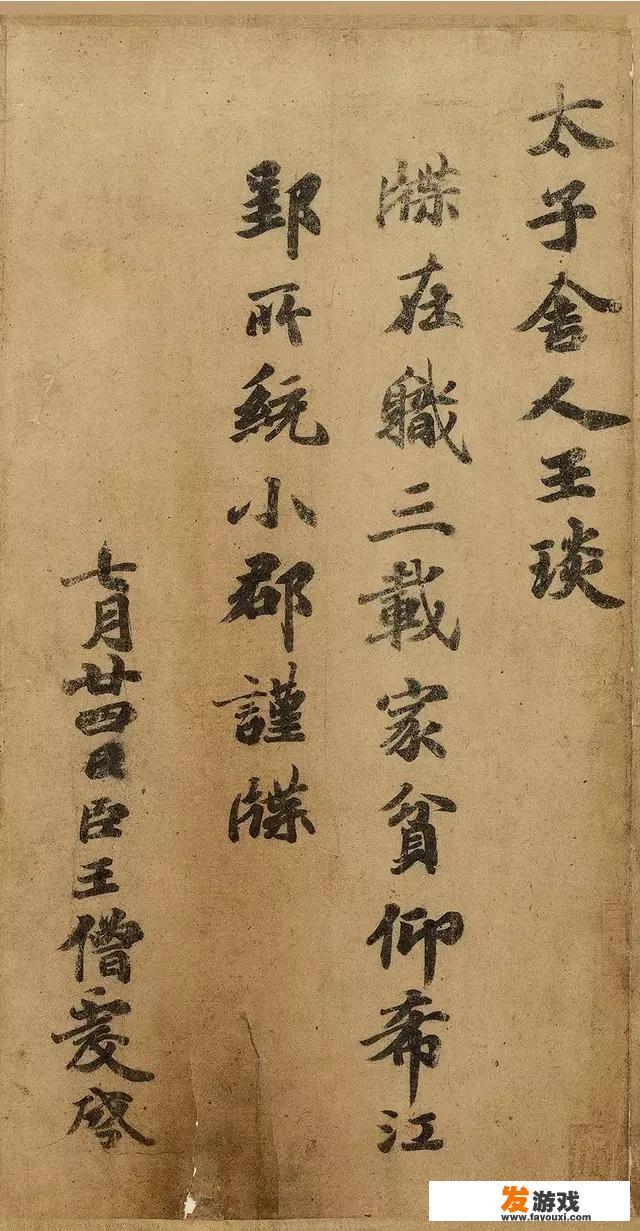 太子舍人王琰
牒在職三載家貧仰希江
郢所統小郡謹牒
七月廿四日臣王僧虔啓
发游戏
www.fayouxi.com